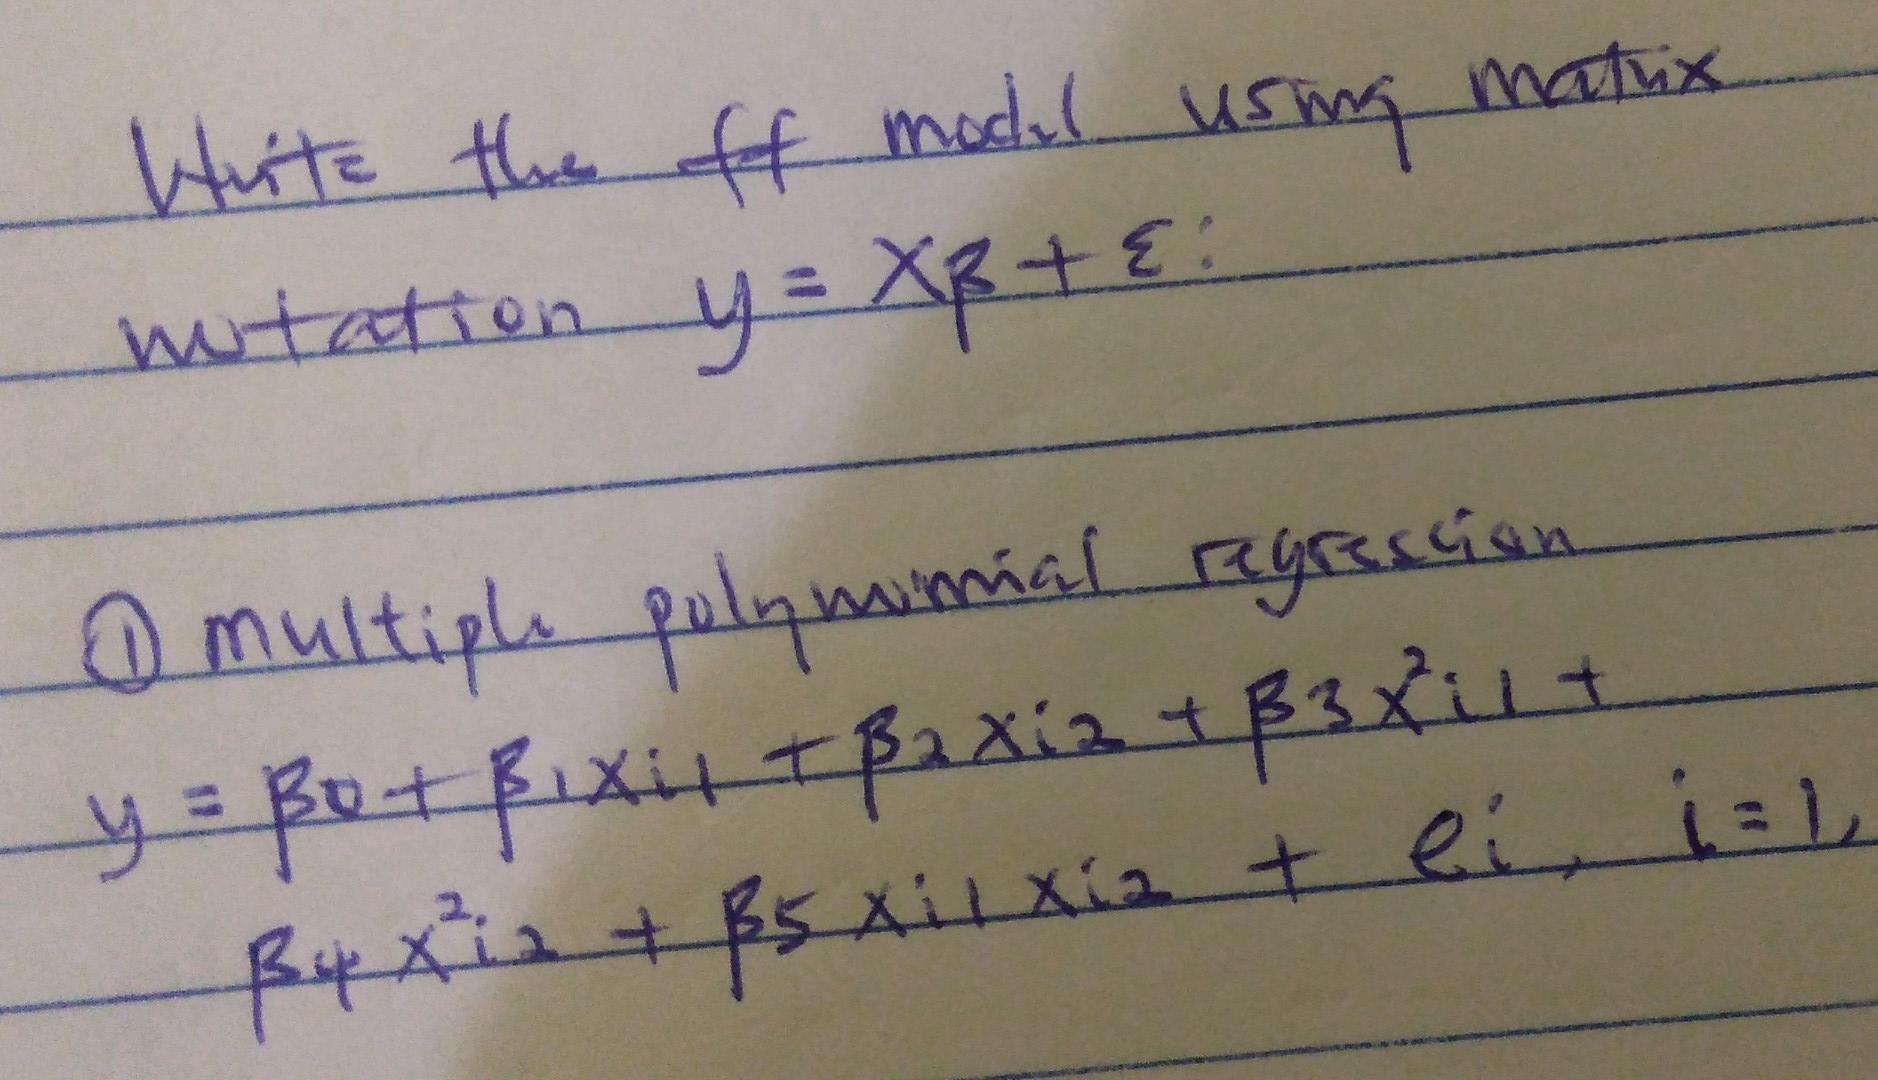 Write the ff model using matrix
notation y = xβ + ε:
① multiple polynomial regression
y = β0 + β1xi1 + β2xi2 + β3x²i1 +
β4x²i2 + β5xi1xi2 + ei, i=1,